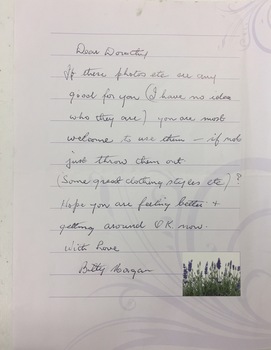 Dear Dorothy
If these photos etc are any
good for you (I have no idea
who they are) you are most
welcome to use them – if not
just throw them out.
(Some great clothing styles etc)?
Hope you are feeling better +
getting around O.K. now.
With love
Betty Hagan